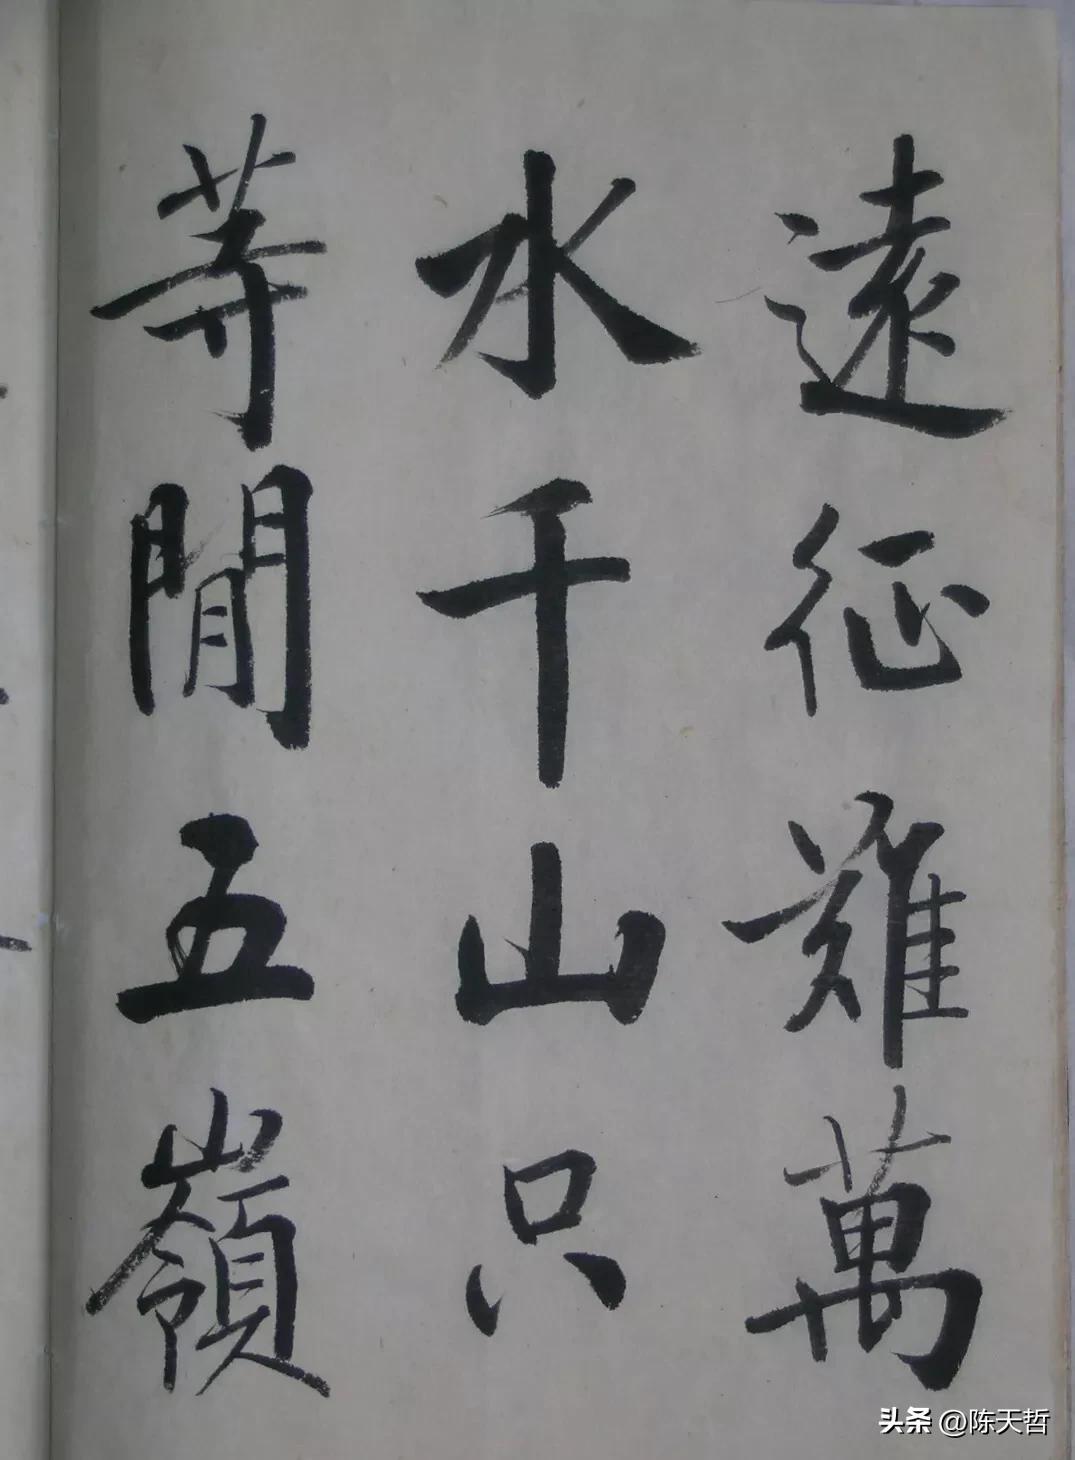 遠征難萬
水千山只
等閒五嶺
头条 @陈天哲